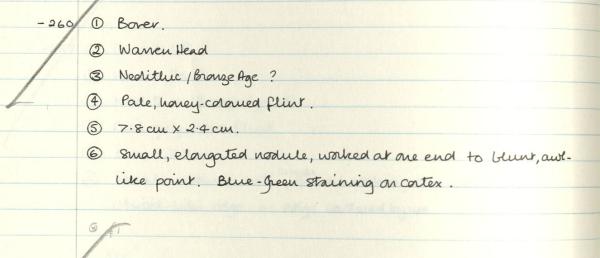 -260 ① Borer.
② Warren Head
③ Neolithic / Bronze Age ?
④ Pale, honey-coloured flint.
⑤ 7.8 cm x 2.4 cm.
⑥ Small, elongated nodule, worked at one end to blunt, awl-
like point. Blue-Green staining on cortex.